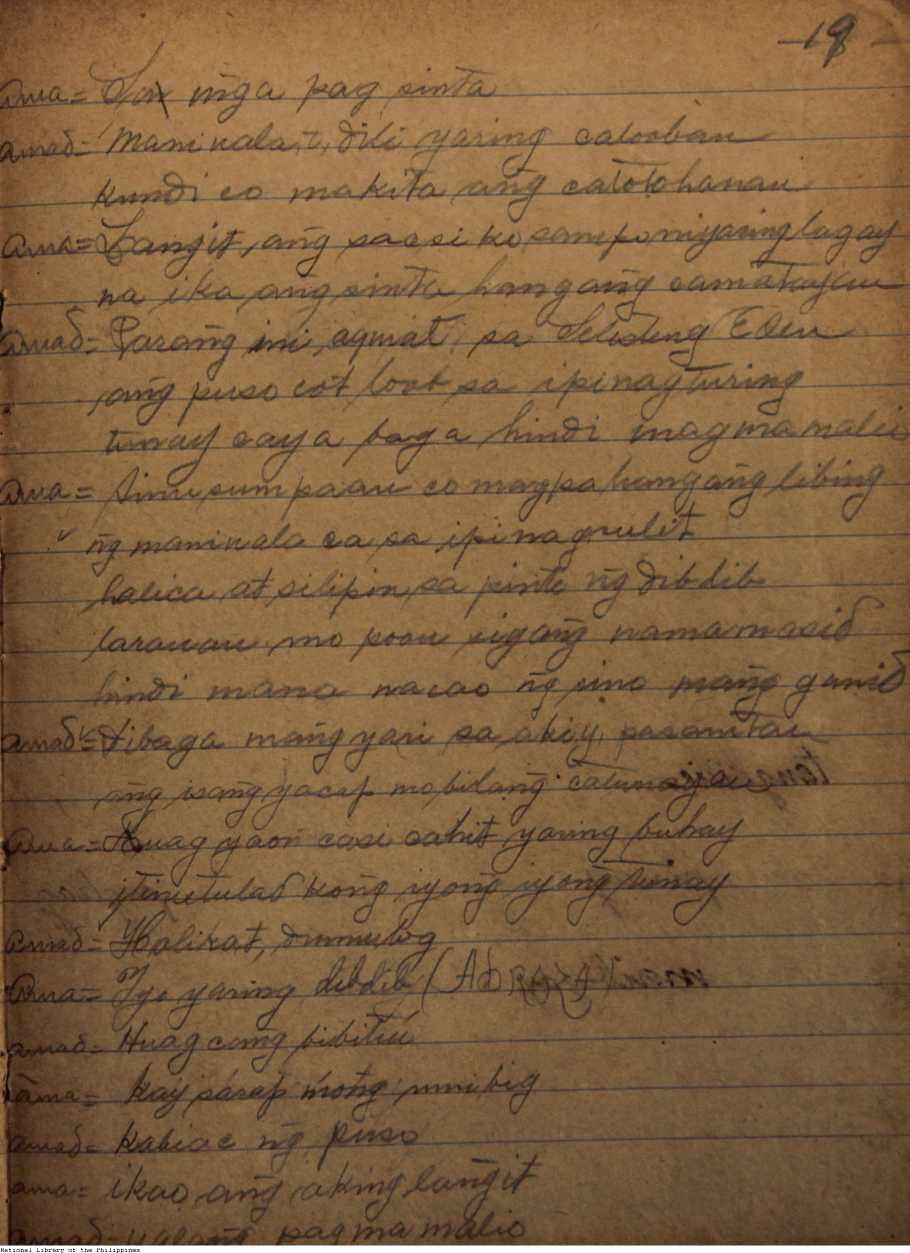 -19-
Ama = Son mga pag sinta
Amad = Maniuala, t, diki yaring calooban
kundi co makita ang catotohanan
Ama = Langit, ang sacsi ko sampo niyaring lagay
na ika ang sinta hangang camatayan
Amad = Parang ini aquiat sa Eden
ang puso cot loob sa ipinagturing
tunay caya baga hindi magmamalio
Ama = sinusumpaan co magpahangang libing
ng maniuala ca sa ipinagsulit
halica at silipin sa pinto ng dibdib
larauan mo poon siyang namamasid
hindi mana nacao ng sino mang ganid
Amad = dibaga mangyari sa abiy, pasanitan
ang isang yacap mobilang
Ama = Huag yaon casi cahit yaring buhay
itinutulad kong iyong iyong tunay
Amad = Halikat, dumulog
Ama = Iyo yaring dibdib (
Amad = Huag cang bibitiu
ama = kay sarap mong umibig
amad = kabiac ng puso
ama = ikao ang aking langit
amad ualang pagmamalio
National Library of the Philippines